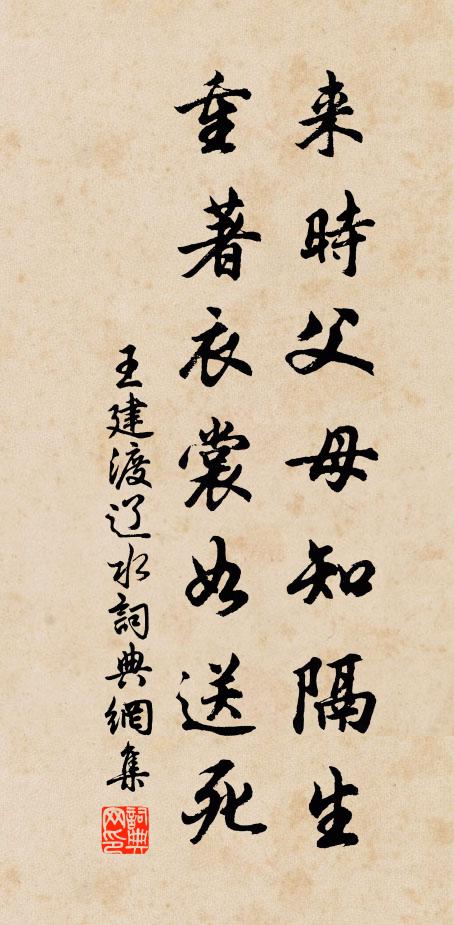 来時父母知隔生
重著衣裳如送死
王建渡辽水詞典網集
詞典网印